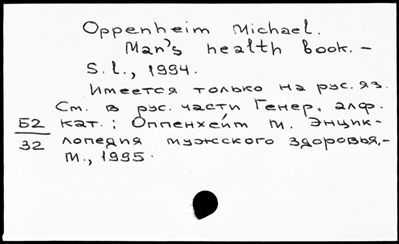 Oppenheim Michael.
Man's health book. –
S.l., 1994.
Имеется только на рус. яз.
См. в рус. части Генер. алф.
Б2 кат.: Оппенхейм М. Энцик-
32 лопедия мужского здоровья,-
М., 1995.